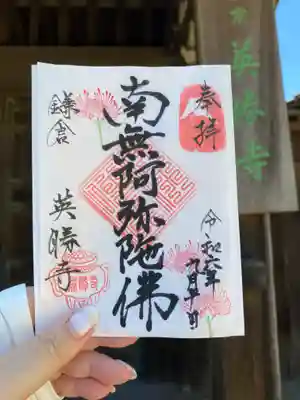 英勝寺
奉拝
令和六年
九月 日
南無阿弥陀佛
鎌倉
英勝寺